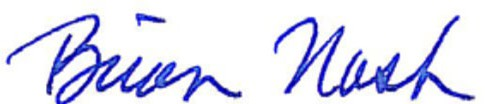 Brian Nash